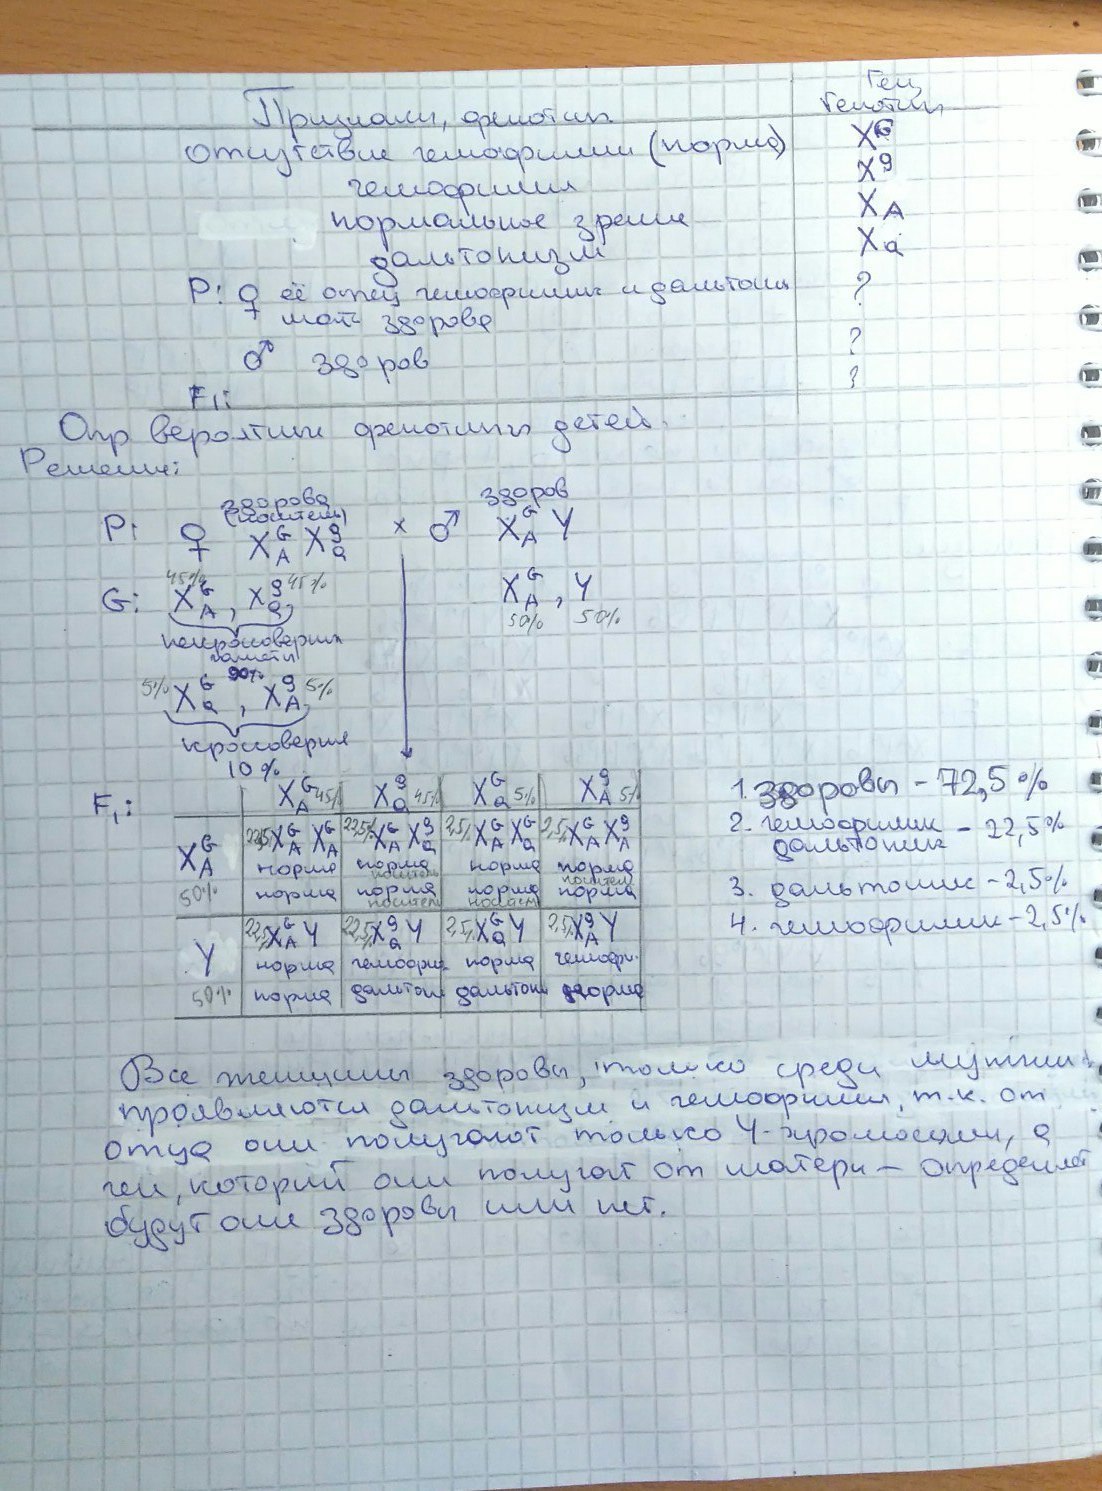 Ген,
Признаки, фенотип генотип
отсутствие гемофилии (норма) X^G
гемофилия X^g
нормальное зрение X_A
дальтонизм X_a
P: ♀ её отец гемофилик и дальтоник ?
мать здорова
♂ здоров ?
F₁: ?
Опр вероятные фенотипы детей.
Решение:
здорова здоров
(носитель)
P: ♀ X^G_A X^g_a × ♂ X^G_A Y
45% 45%
G: X^G_A , X^g_a X^G_A , Y
50% 50%
некроссоверные
гаметы
90%
5% X^G_a , X^g_A 5%
кроссоверные
10%
F₁: X^G_A 45% X^g_a 45% X^G_a 5% X^g_A 5%
X^G_A 22,5% X^G_A X^G_A 22,5% X^G_A X^g_a 2,5% X^G_A X^G_a 2,5% X^G_A X^g_A
норма норма норма норма
носитель носител
50% норма норма норма норма
носител носител
Y 22,5% X^G_A Y 22,5% X^g_a Y 2,5% X^G_a Y 2,5% X^g_A Y
норма гемофил. норма гемофи.
50% норма дальтон дальтон норма
1. здоровы – 72,5%
2. гемофилик – 22,5%
дальтоник
3. дальтоник – 2,5%
4. гемофилик – 2,5%
Все женщины здоровы, только среди мужчин
проявляются дальтонизм и гемофилия, т.к. от
отца они получают только Y-хромосомы, а
ген, который они получат от матери – определяет
будут они здоровы или нет.